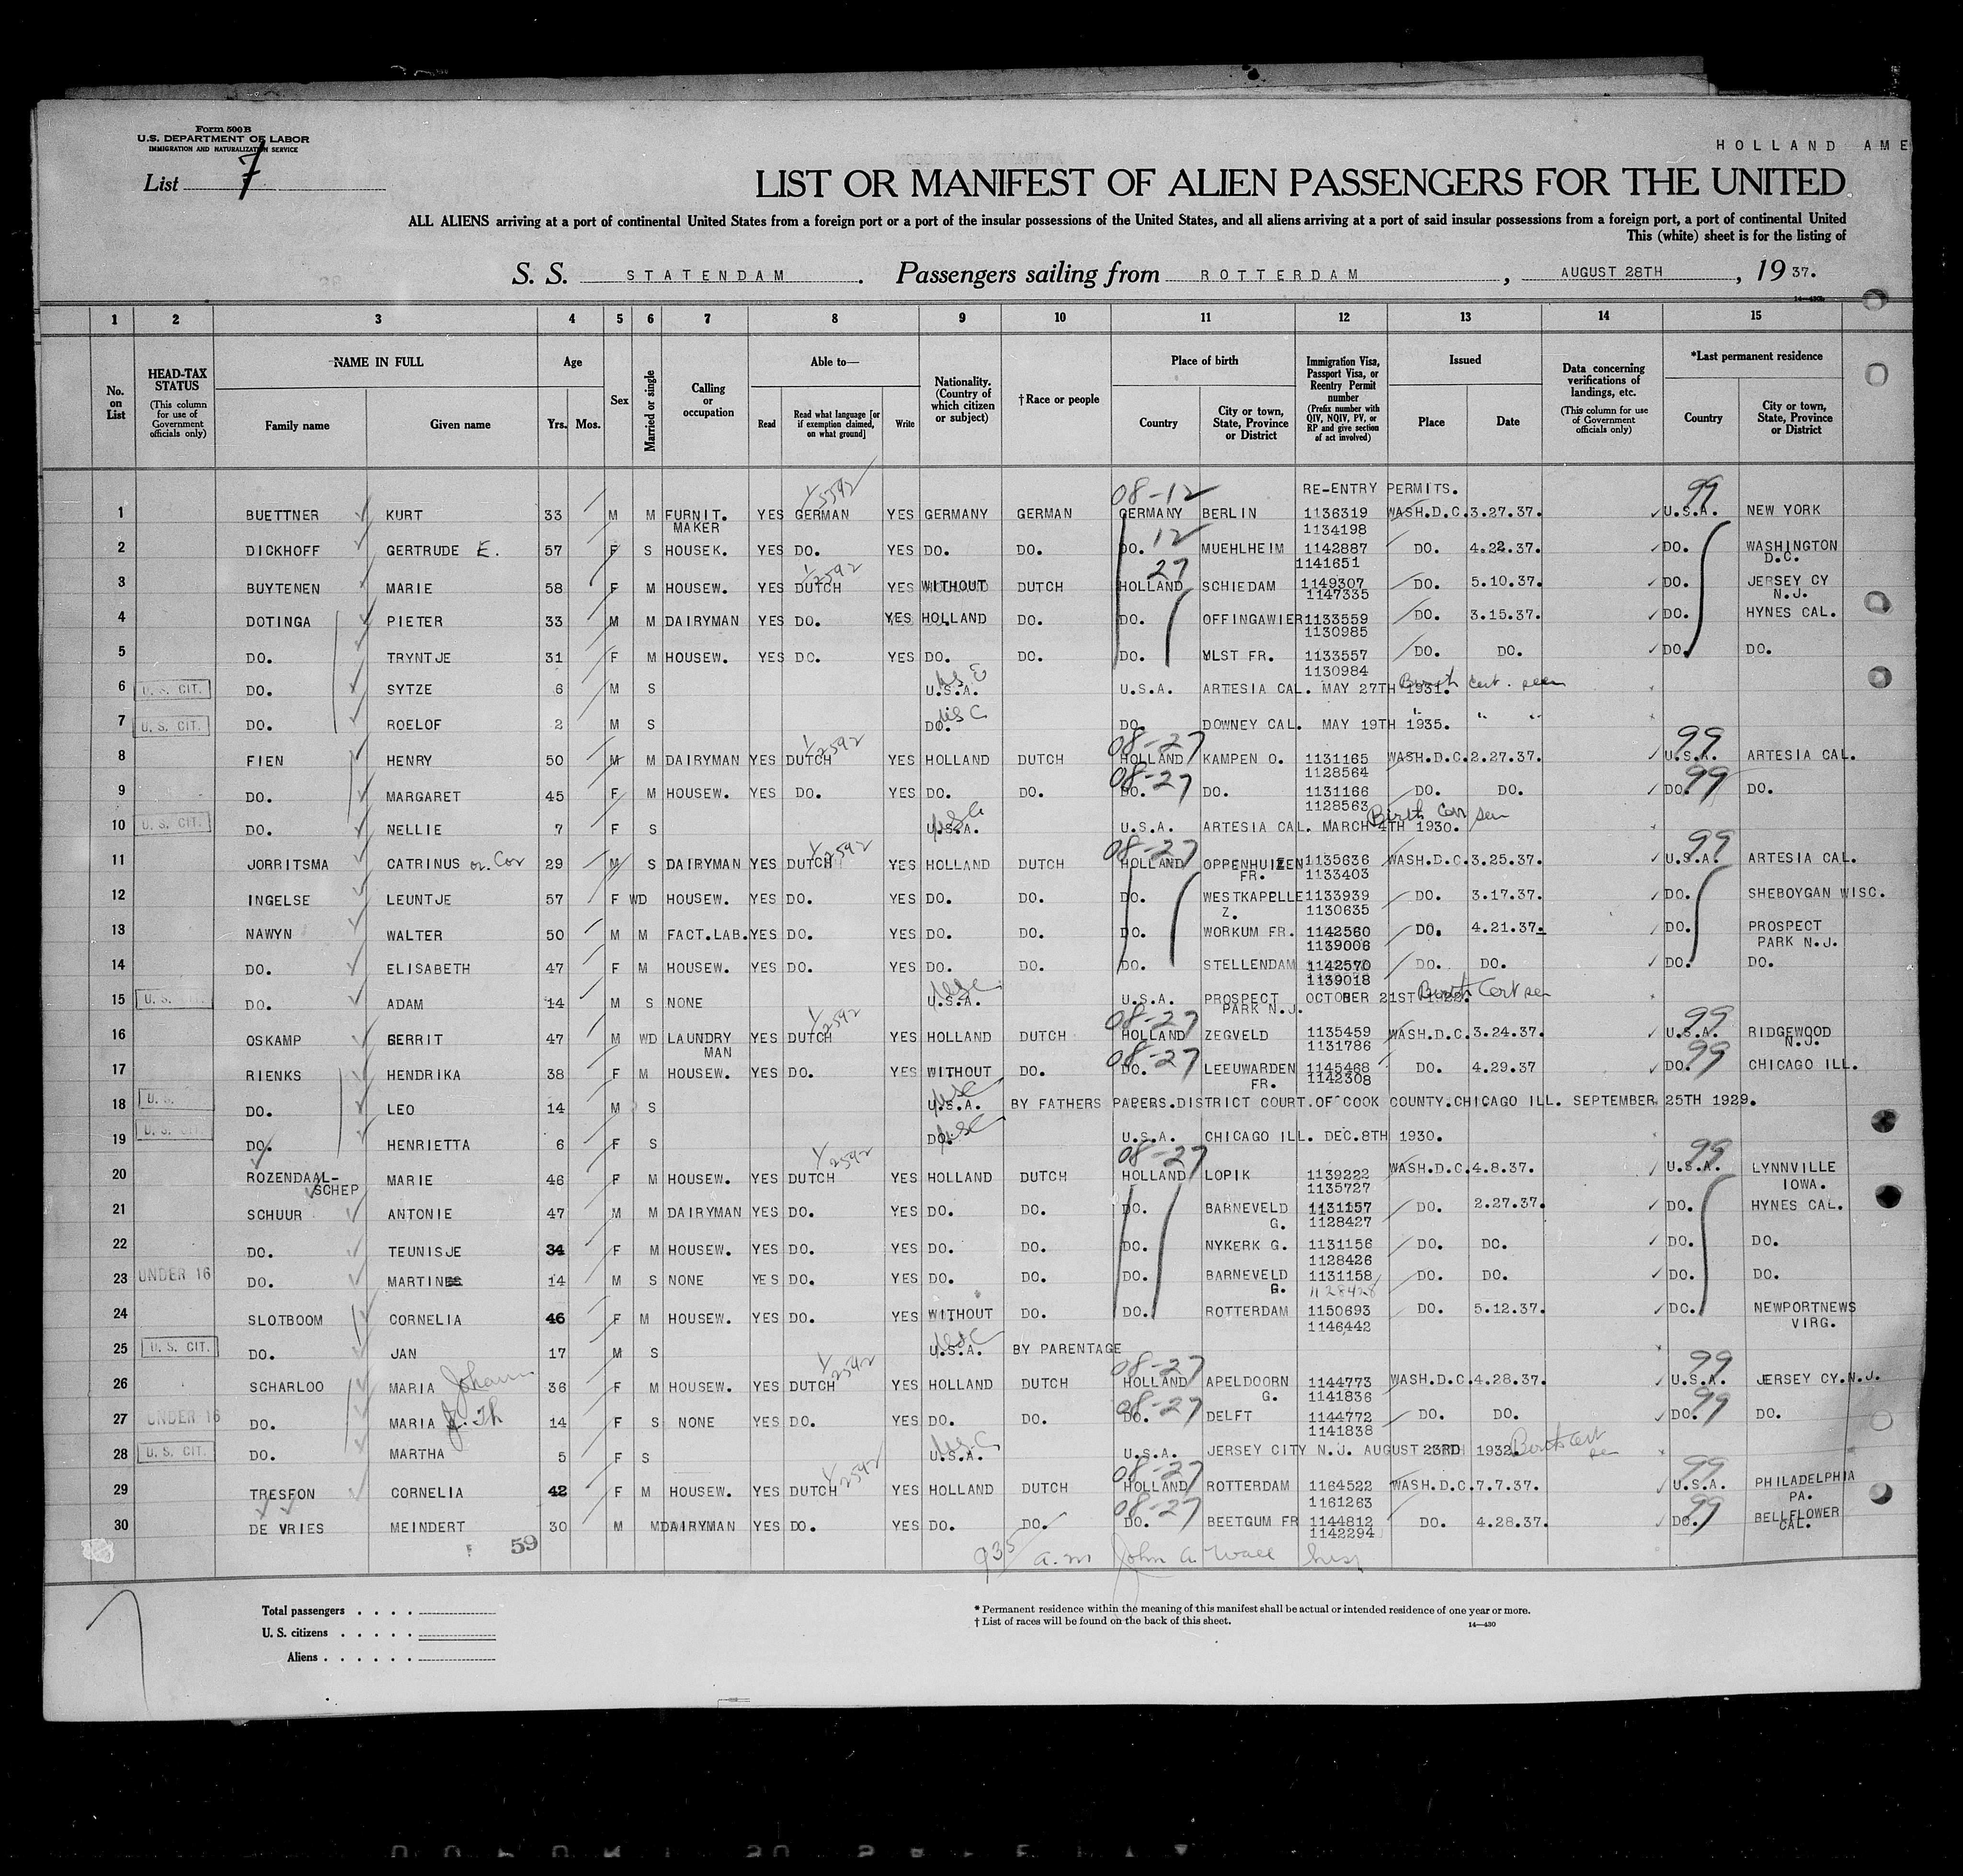 Form 500 B
U.S. DEPARTMENT OF LABOR
IMMIGRATION AND NATURALIZATION SERVICE
HOLLAND AME
List 7
LIST OR MANIFEST OF ALIEN PASSENGERS FOR THE UNITED
ALL ALIENS arriving at a port of continental United States from a foreign port or a port of the insular possessions of the United States, and all aliens arriving at a port of said insular possessions from a foreign port, a port of continental United
This (white) sheet is for the listing of
S. S. STATENDAM. Passengers sailing from ROTTERDAM, AUGUST 28TH, 19 37.
1 2 3 4 5 6 7 8 9 10 11 12 13 14 15
No. on List
HEAD-TAX STATUS (This column for use of Government officials only)
NAME IN FULL Family name Given name
Age Yrs. Mos.
Sex
Married or single
Calling or occupation
Able to— Read Read what language [or if exemption claimed, on what ground] Write
Nationality. (Country of which citizen or subject)
†Race or people
Place of birth Country City or town, State, Province or District
Immigration Visa, Passport Visa, or Reentry Permit number (Prefix number with QIV, NQIV, PV, or RP and give section of act involved)
Issued Place Date
Data concerning verifications of landings, etc. (This column for use of Government officials only)
*Last permanent residence Country City or town, State, Province or District
08-12 RE-ENTRY PERMITS. 99
1 BUETTNER KURT 33 M M FURNIT. MAKER YES GERMAN YES GERMANY GERMAN GERMANY BERLIN 1136319 1134198 WASH.D.C. 3.27.37. U.S.A. NEW YORK
2 DICKHOFF GERTRUDE E. 57 F S HOUSEK. YES DO. YES DO. DO. DO. 12 MUEHLHEIM 1142887 1141651 DO. 4.22.37. DO. WASHINGTON D.C.
3 BUYTENEN MARIE 58 F M HOUSEW. YES DUTCH YES WITHOUT DUTCH 27 HOLLAND SCHIEDAM 1149307 1147335 DO. 5.10.37. DO. JERSEY CY N.J.
4 DOTINGA PIETER 33 M M DAIRYMAN YES DO. YES HOLLAND DO. DO. OFFINGAWIER 1133559 1130985 DO. 3.15.37. DO. HYNES CAL.
5 DO. TRYNTJE 31 F M HOUSEW. YES DO. YES DO. DO. DO. YLST FR. 1133557 1130984 DO. DO. DO. DO.
6 U. S. CIT. DO. SYTZE 6 M S U.S.A. U.S.A. ARTESIA CAL. MAY 27TH 1931. Birth Cert. seen
7 U. S. CIT. DO. ROELOF 2 M S DO. DO. DOWNEY CAL. MAY 19TH 1935. " " "
8 FIEN HENRY 50 M M DAIRYMAN YES DUTCH YES HOLLAND DUTCH 08-27 HOLLAND KAMPEN O. 1131165 1128564 WASH.D.C. 2.27.37. 99 U.S.A. ARTESIA CAL.
9 DO. MARGARET 45 F M HOUSEW. YES DO. YES DO. DO. 08-27 DO. DO. 1131166 1128563 DO. DO. DO. 99 DO.
10 U. S. CIT. DO. NELLIE 7 F S U.S.A. U.S.A. ARTESIA CAL. MARCH 4TH 1930. Birth Cer sen
11 JORRITSMA CATRINUS or. Cor 29 M S DAIRYMAN YES DUTCH YES HOLLAND DUTCH 08-27 HOLLAND OPPENHUIZEN FR. 1135636 1133403 WASH.D.C. 3.25.37. 99 U.S.A. ARTESIA CAL.
12 INGELSE LEUNTJE 57 F WD HOUSEW. YES DO. YES DO. DO. DO. WESTKAPELLE Z. 1133939 1130635 DO. 3.17.37. DO. SHEBOYGAN WISC.
13 NAWYN WALTER 50 M M FACT.LAB. YES DO. YES DO. DO. DO. WORKUM FR. 1142560 1139006 DO. 4.21.37. DO. PROSPECT PARK N.J.
14 DO. ELISABETH 47 F M HOUSEW. YES DO. YES DO. DO. DO. STELLENDAM 1142570 1139018 DO. DO. DO. DO.
15 U. S. DO. ADAM 14 M S NONE U.S.A. U.S.A. PROSPECT PARK N.J. OCTOBER 21ST Birth Cert sen
16 OSKAMP GERRIT 47 M WD LAUNDRY MAN YES DUTCH YES HOLLAND DUTCH 08-27 HOLLAND ZEGVELD 1135459 1131786 WASH.D.C. 3.24.37. 99 U.S.A. RIDGEWOOD N.J.
17 RIENKS HENDRIKA 38 F M HOUSEW. YES DO. YES WITHOUT DO. 08-27 DO. LEEUWARDEN FR. 1145468 1142308 DO. 4.29.37 DO. 99 CHICAGO ILL.
18 U. S. DO. LEO 14 M S U.S.A. BY FATHERS PAPERS.DISTRICT COURT.OF COOK COUNTY.CHICAGO ILL. SEPTEMBER 25TH 1929.
19 U. S. CIT. DO. HENRIETTA 6 F S DO. U.S.A. CHICAGO ILL. DEC.8TH 1930.
20 ROZENDAAL-SCHEP MARIE 46 F M HOUSEW. YES DUTCH YES HOLLAND DUTCH 08-27 HOLLAND LOPIK 1139222 1135727 WASH.D.C. 4.8.37. 99 U.S.A. LYNNVILLE IOWA.
21 SCHUUR ANTONIE 47 M M DAIRYMAN YES DO. YES DO. DO. DO. BARNEVELD G. 1131157 1128427 DO. 2.27.37. DO. HYNES CAL.
22 DO. TEUNISJE 34 F M HOUSEW. YES DO. YES DO. DO. DO. NYKERK G. 1131156 1128426 DO. DO. DO. DO.
23 UNDER 16 DO. MARTIN 14 M S NONE YES DO. YES DO. DO. DO. BARNEVELD G. 1131158 1128428 DO. DO. DO. DO.
24 SLOTBOOM CORNELIA 46 F M HOUSEW. YES DO. YES WITHOUT DO. DO. ROTTERDAM 1150693 1146442 DO. 5.12.37. DO. NEWPORTNEWS VIRG.
25 U. S. CIT. DO. JAN 17 M S U.S.A. BY PARENTAGE
26 SCHARLOO MARIA Johann 36 F M HOUSEW. YES DUTCH YES HOLLAND DUTCH 08-27 HOLLAND APELDOORN G. 1144773 1141836 WASH.D.C. 4.28.37. 99 U.S.A. JERSEY CY.N.J.
27 UNDER 16 DO. MARIA J. Th 14 F S NONE YES DO. YES DO. DO. 08-27 DO. DELFT 1144772 1141838 DO. DO. DO. 99 DO.
28 U. S. CIT. DO. MARTHA 5 F S U.S.A. U.S.A. JERSEY CITY N.J. AUGUST 23RD 1932. Birth Cert
29 TRESFON CORNELIA 42 F M HOUSEW. YES DUTCH YES HOLLAND DUTCH 08-27 HOLLAND ROTTERDAM 1164522 1161263 WASH.D.C. 7.7.37. 99 U.S.A. PHILADELPHIA PA.
30 DE VRIES MEINDERT 30 M M DAIRYMAN YES DO. YES DO. DO. 08-27 DO. BEETGUM FR 1144812 1142294 DO. 4.28.37. DO. 99 BELLFLOWER CAL.
59 935 a.m John A. Wall Insp
Total passengers . . . .
U. S. citizens . . . . .
Aliens . . . . . .
* Permanent residence within the meaning of this manifest shall be actual or intended residence of one year or more.
† List of races will be found on the back of this sheet.
14—430